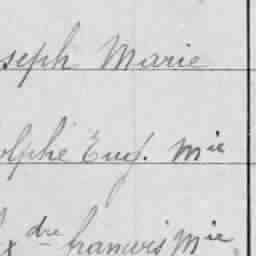 seph Marie
olphe Eug. Mie
x dre francois Mie